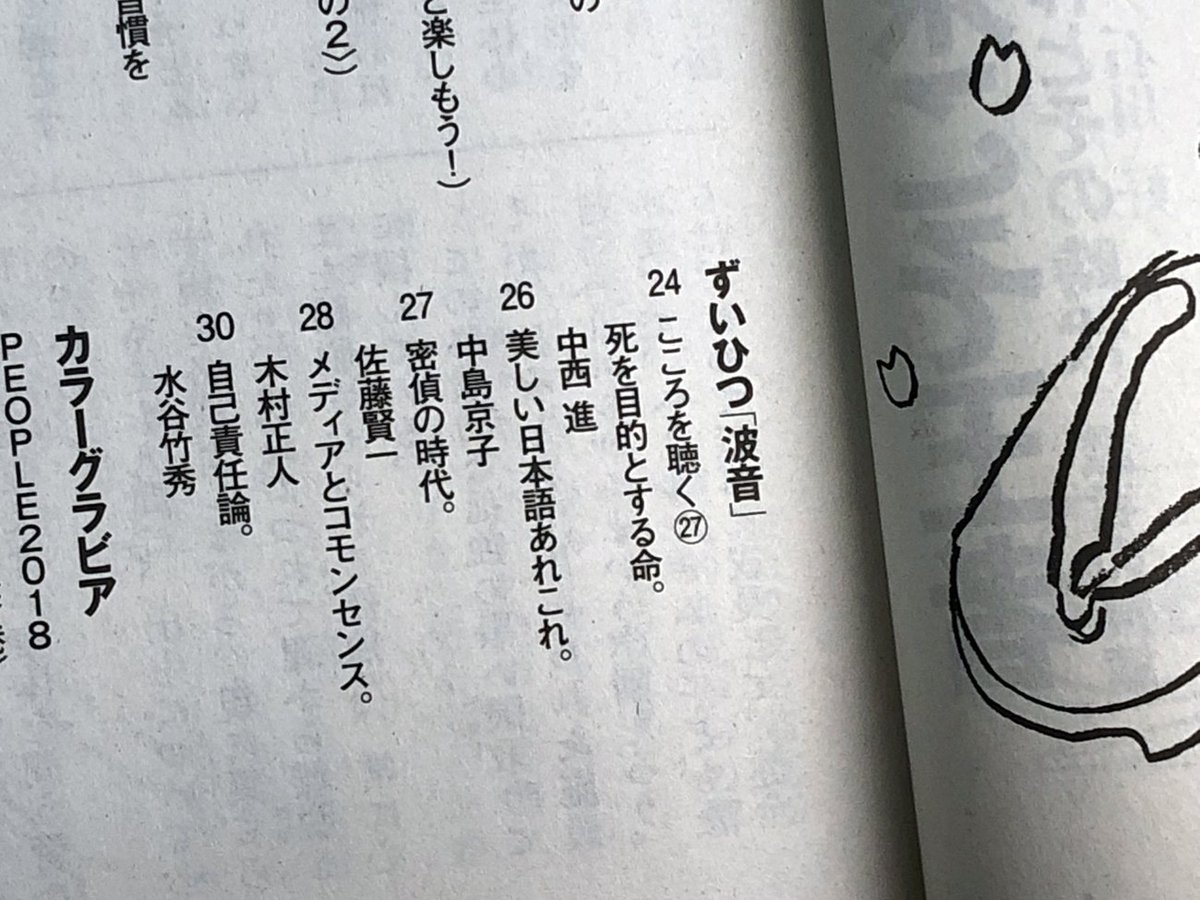 と楽しもう！）
の２）
習慣を
ずいひつ「波音」
24 こころを聴く㉗
死を目的とする命。
中西 進
26 美しい日本語あれこれ。
中島京子
27 密偵の時代。
佐藤賢一
28 メディアとコモンセンス。
木村正人
30 自己責任論。
水谷竹秀
カラーグラビア
PEOPLE2018